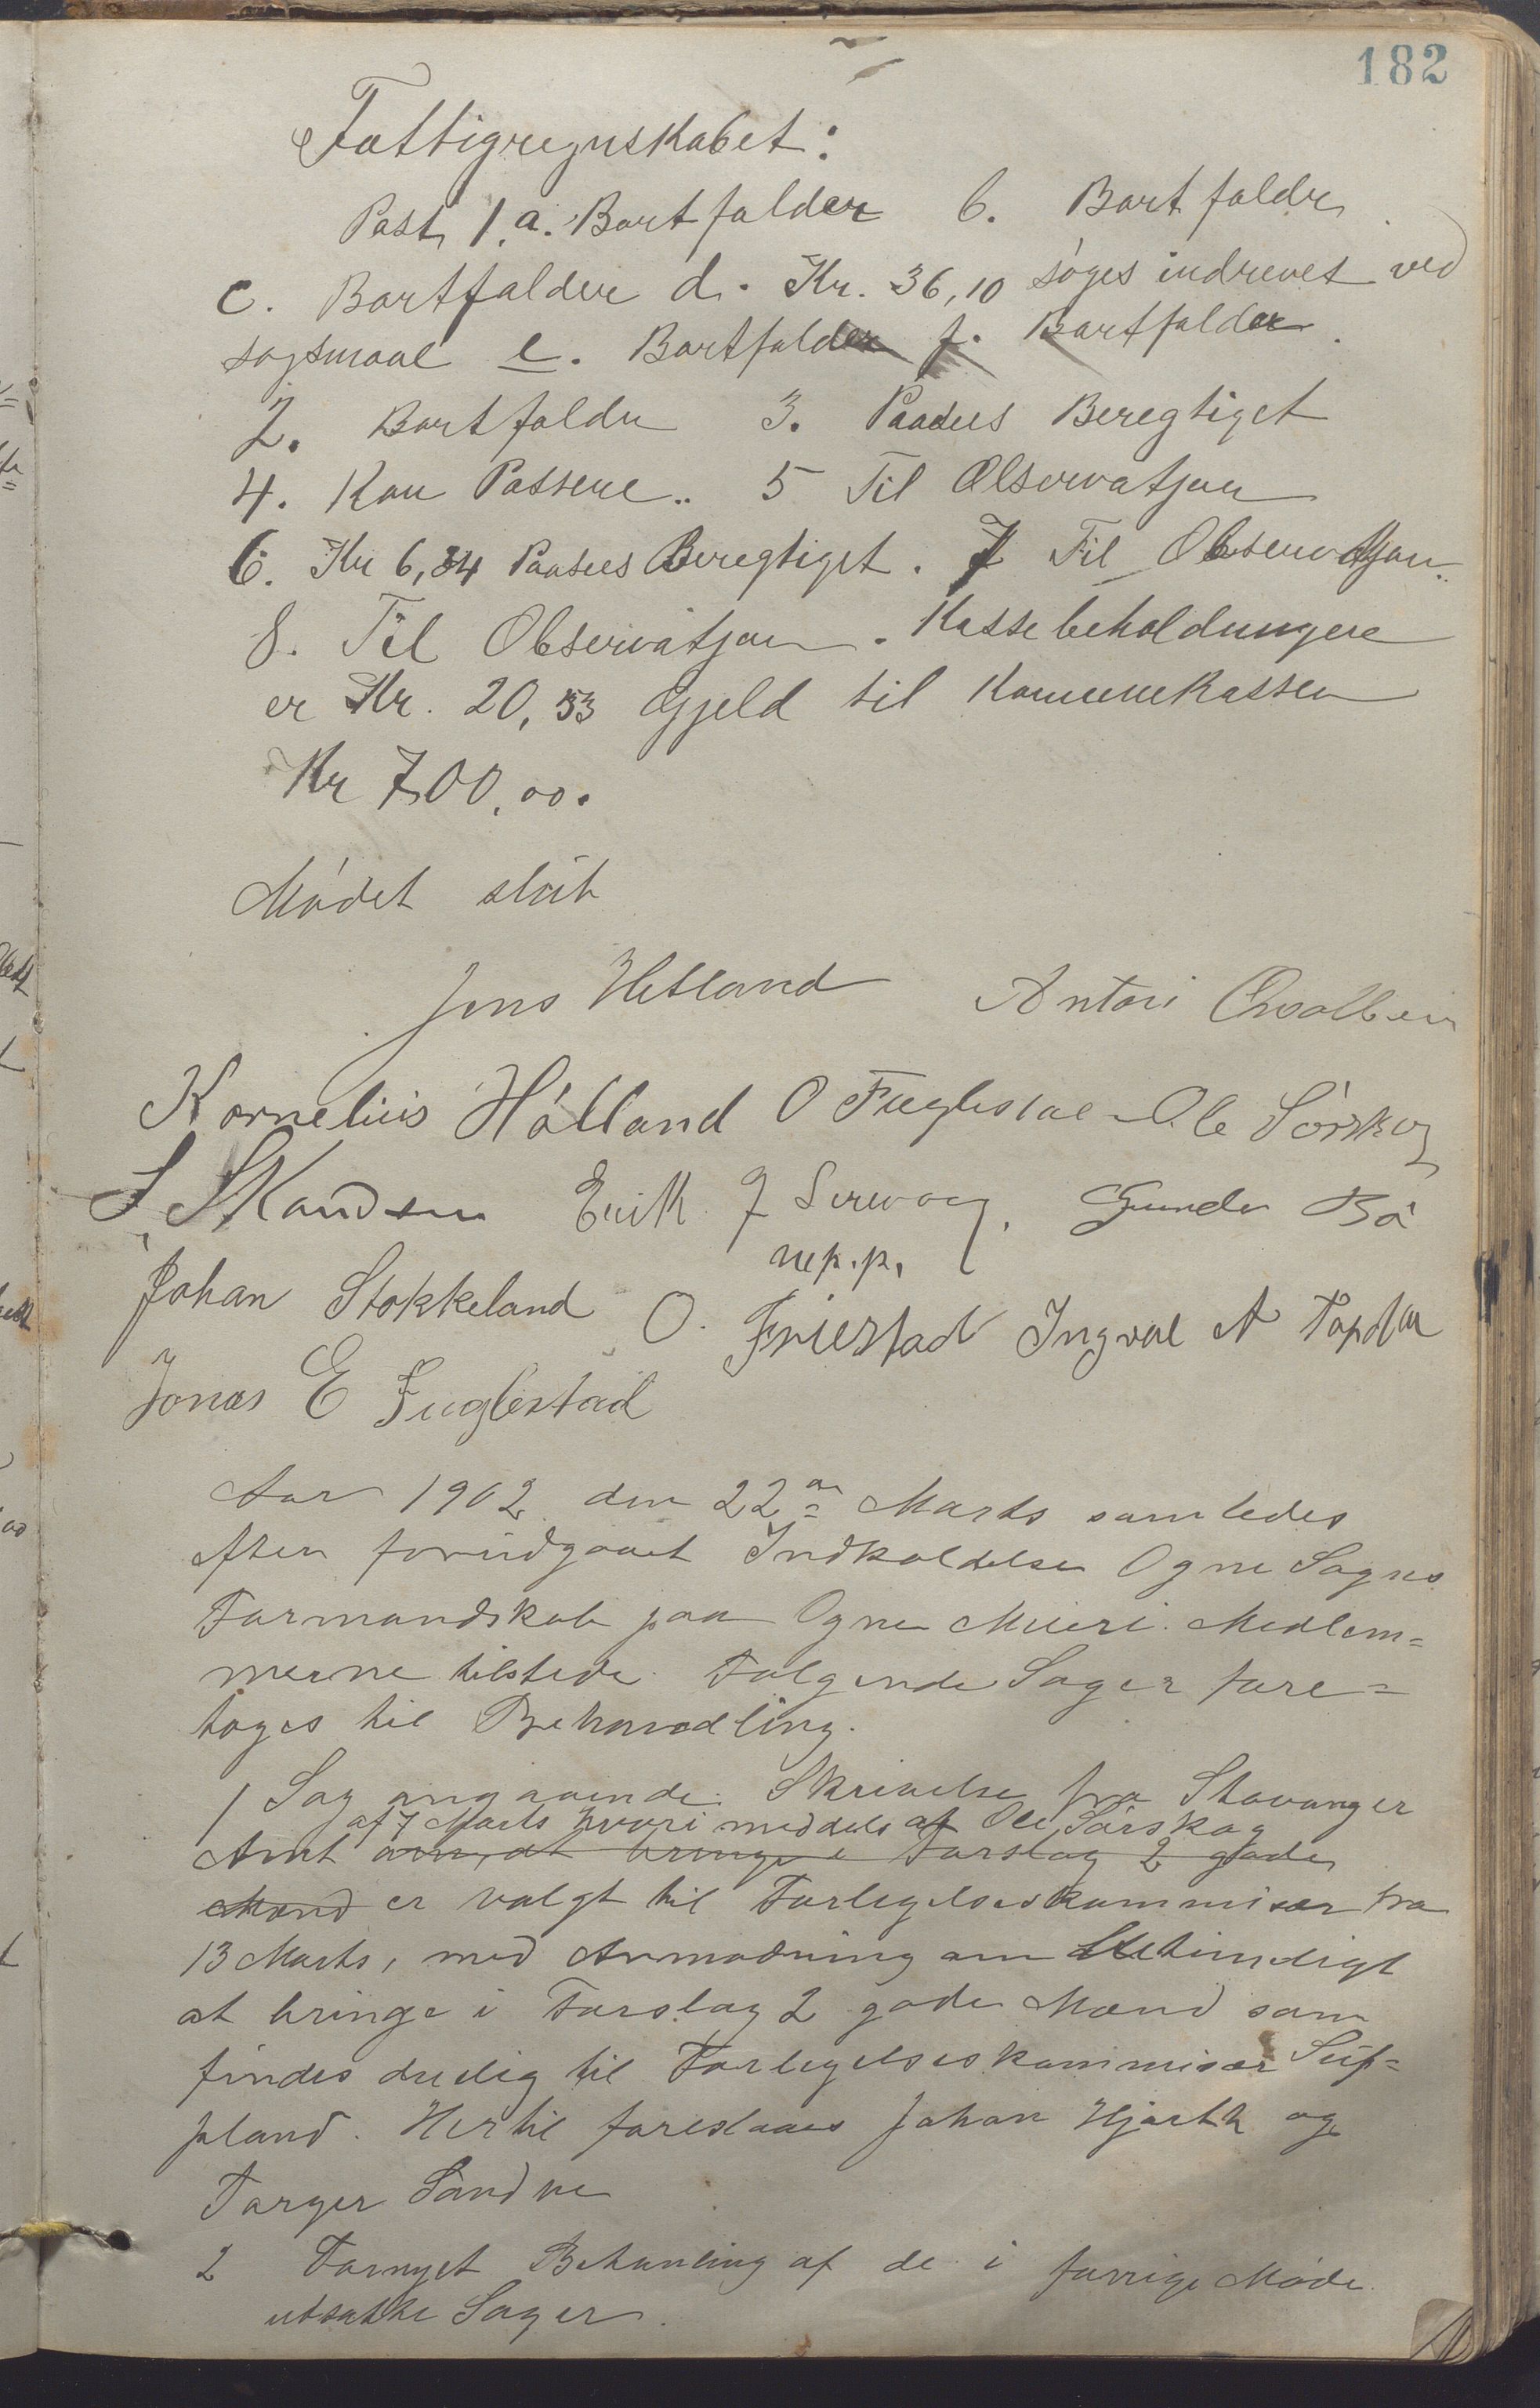 182
Fattigregnskabet:
Post 1.a. Bortfalder b. Bortfalder
c. Bortfalder d. Kr. 36,10 søges indrevet ved
søgsmaal e. Bortfalder f. Bortfalder.
2. Bortfalder 3. Paasees Beregtiget
4. Kan Passere. 5 Til Observatjon
6. Kr 6,34 Paasees Beregtiget. 7 Til Observatjon.
8. Til Observatjon. Kassebeholdningene
er Kr. 20,53 Gjeld til Komunekassen
Kr 700,00.
Mødet slut
Jens Hetland Antoni
Kornelius Hålland O Fuglestad Ole Sørskog
S Skandsen Erik J Sirevaag. Gunder Bø
m.p.p.
Johan Stokkeland O. Friestad Ingval A
Jonas E Fuglestad
Aar 1902 den 22de Marts samledes
efter forudgaaet Indkaldelse Ogne Sogns
Formandskab paa Ogne Meieri. Medlem-
merne tilstede. Følgende Sager fore-
toges til Behandling.
1 Sag angaaende Skrivelse fra Stavanger
af 7 Marts hvori meddeles at Ole Sørskog
Amt om at bringe i Forslag 2 gode
Mænd er valgt til Forligelseskommisær fra
13 Marts, med Anmodning om
at bringe i Forslag 2 gode Mænd som
findes duelig til Forligelseskommisær Sup-
pleand. Hertil foreslaaes Johan Hjorth og
Torger Sandve
2 Fornyet Behanling af de i forrige Møde
utsatte Sager.